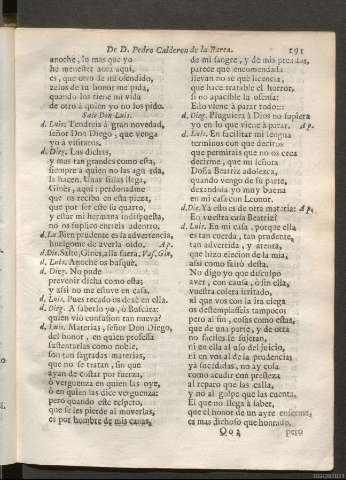 De D. Pedro Calderon de la Barca. 291
anoche, lo mas que yo
he menester aora aqui,
es, que otro de mi ofendido,
zelos de tu honor me pida,
quando los tiene mi vida
de otro à quien yo no los pido.
Sale Don Luis.
d. Luis. Tendreis à gran novedad,
señor Don Diego, que venga
yo à visitaros.
d. Dieg. Las dichas,
y mas tan grandes como esta,
siempre à quien no las aguarda,
la hacen. Unas sillas llega,
Ginès, aqui: perdonadme
que os recibo en esta pieza,
que por ser esse tu quarto,
y estar mi hermana indispuesta,
no os suplico entreis adentro.
d. Lu. Bien prudente es la advertencia,
huelgome de averla oido. Ap.
d. Die. Salte, Ginès, allà fuera. Vase Gin.
d. Luis. Anoche os busquè.
d. Dieg. No pude
prevenir dicha como esta;
y assi no me estuve en casa.
d. Luis. Pues recado os dexè en ella.
d. Dieg. A saberlo yo, ò buscàra:
quien viò confusion tan nueva!
d. Luis. Materias, señor Don Diego,
del honor, en quien professa
sustentarlas como noble,
son tan sagradas materias,
que no se tratan, sin que
ayan de costar por fuerza,
ò verguenza en quien las oye,
ò en quien las dice verguenza:
pero quando este respeto,
que se les pierde al moverlas,
es por hombre de mis canas,
de mi sangre, y de mis prendas,
parece que encomendada
llevan no sè què licencia,
que hace tratable el horror,
si no apacible la ofensa:
Esto viene à parar todo::
d. Dieg. Pluguiera à Dios no supiera
yo en lo que viene à parar. Ap.
d. Luis. En facilitar mi lengua
terminos con que deciros
que permitais que no os cuesta
decirme, que mi señora
Doña Beatriz adolezca,
quando vengo de su parte,
dexandola yo muy buena
en mi casa con Leonor.
d. Die. Ya esto es de otra materia: Ap.
En vuestra casa Beatriz?
d. Luis. En mi casa, porque ella
es tan cuerda, tan prudente,
tan advertida, y atenta,
que hizo eleccion de la mia,
assi como saliò desta.
No digo yo que disculpo
aver, con causa, ò sin ella,
vuestra colera irritado,
ni que vos con la ira ciega
os destemplasseis tampoco;
pero al fin, cosas como estas,
que de una parte, y de otra
no faciles se sujetan,
ni en ella al uso del juicio,
ni en vos al de la prudencia;
yà sucedidas, no ay cosa
como acudir con presteza
al reparo que las calla,
y no al golpe que las cuenta.
El que no llega à saber,
que el honor de un ayre enferma,
es mas dichoso que honrado,
Oo 2 pero